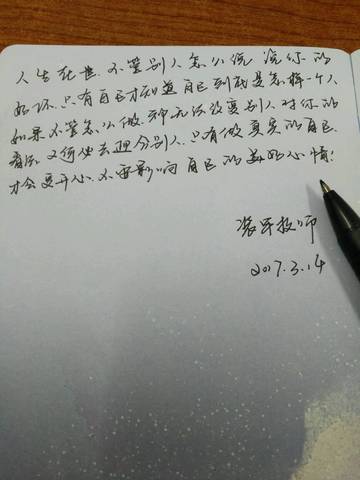 人生在世.不管别人怎么说 说你的
好坏.只有自己才知道自己到底是怎样一个人
如果不管怎么做.都无法改变别人对你的
看法.又何必去迎合别人.只有做真实的自己.
才会更开心.不要影响自己的美好心情!
教师
2017.3.14